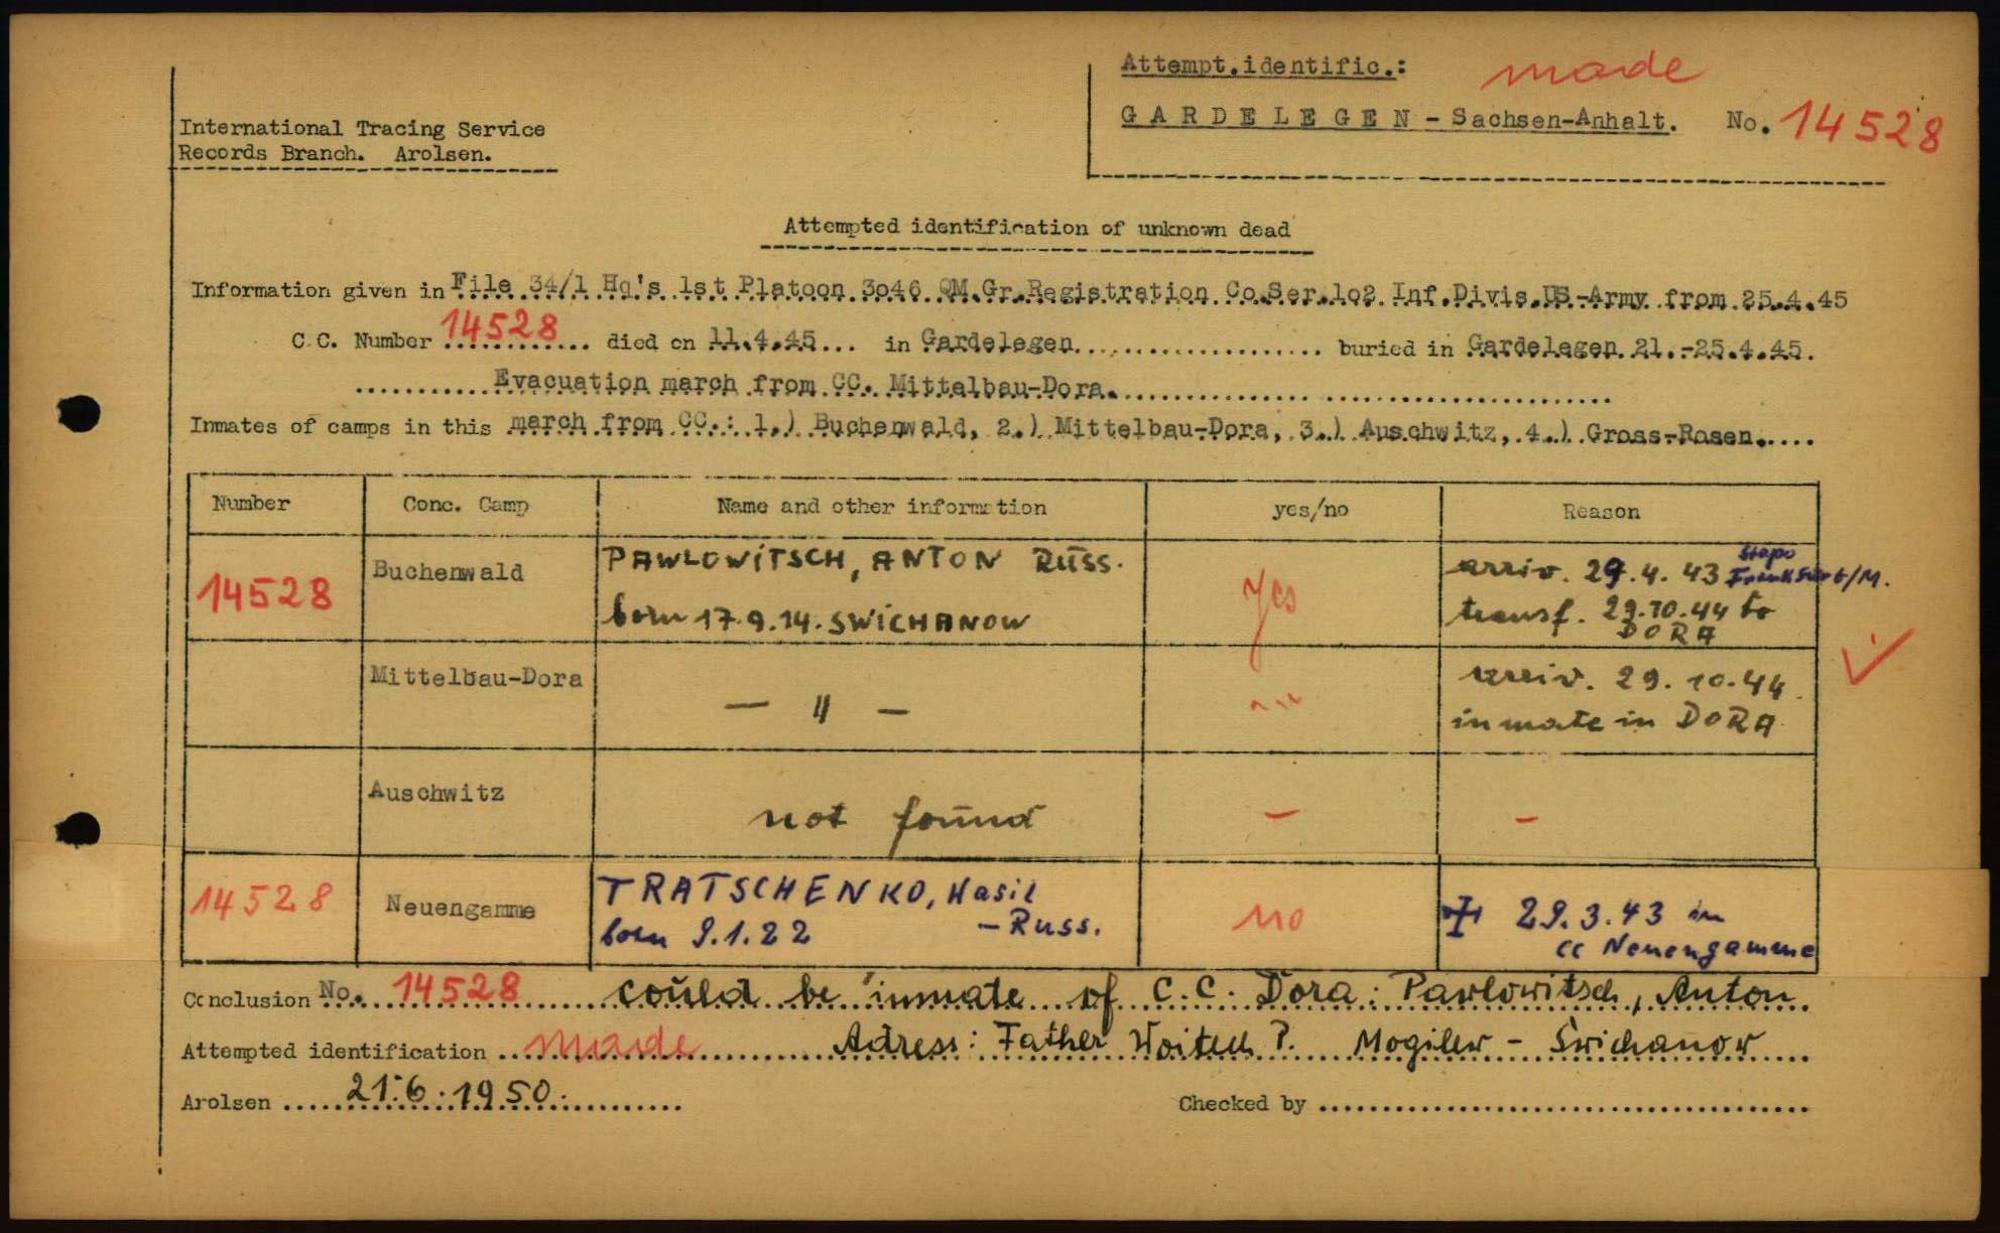 Attempt.identific.: made
GARDELEGEN - Sachsen-Anhalt. No. 14528
International Tracing Service
Records Branch. Arolsen.
Attempted identification of unknown dead
Information given in File 34/1 Hq's 1st Platoon 3046 QM.Gr.Registration Co.Ser.102 Inf.Divis.US-Army from 25.4.45
C.C. Number 14528 died on 11.4.45... in Gardelegen........ buried in Gardelegen 21.-25.4.45.
Evacuation march from CC. Mittelbau-Dora.
Inmates of camps in this march from CC.: 1.) Buchenwald, 2.) Mittelbau-Dora, 3.) Auschwitz, 4.) Gross-Rosen.
Number Conc. Camp Name and other information yes/no Reason
14528 Buchenwald PAWLOWITSCH, ANTON RUSS. yes arriv. 29.4.43 Stapo Frankfurt/M.
born 17.9.14. SWICHANOW transf. 29.10.44 to
DORA
Mittelbau-Dora — " — arriv. 29.10.44.
inmate in DORA
Auschwitz not found — —
14528 Neuengamme TRATSCHENKO, Wasil no ✝ 29.3.43 in
born 9.1.22 - Russ. CC Neuengamme
Conclusion No. 14528 could be inmate of C.C. Dora: Pawlowitsch, Anton.
Attempted identification made Adress: Father Woitech P. Mogilew - Swichanow
Arolsen 21.6.1950. Checked by